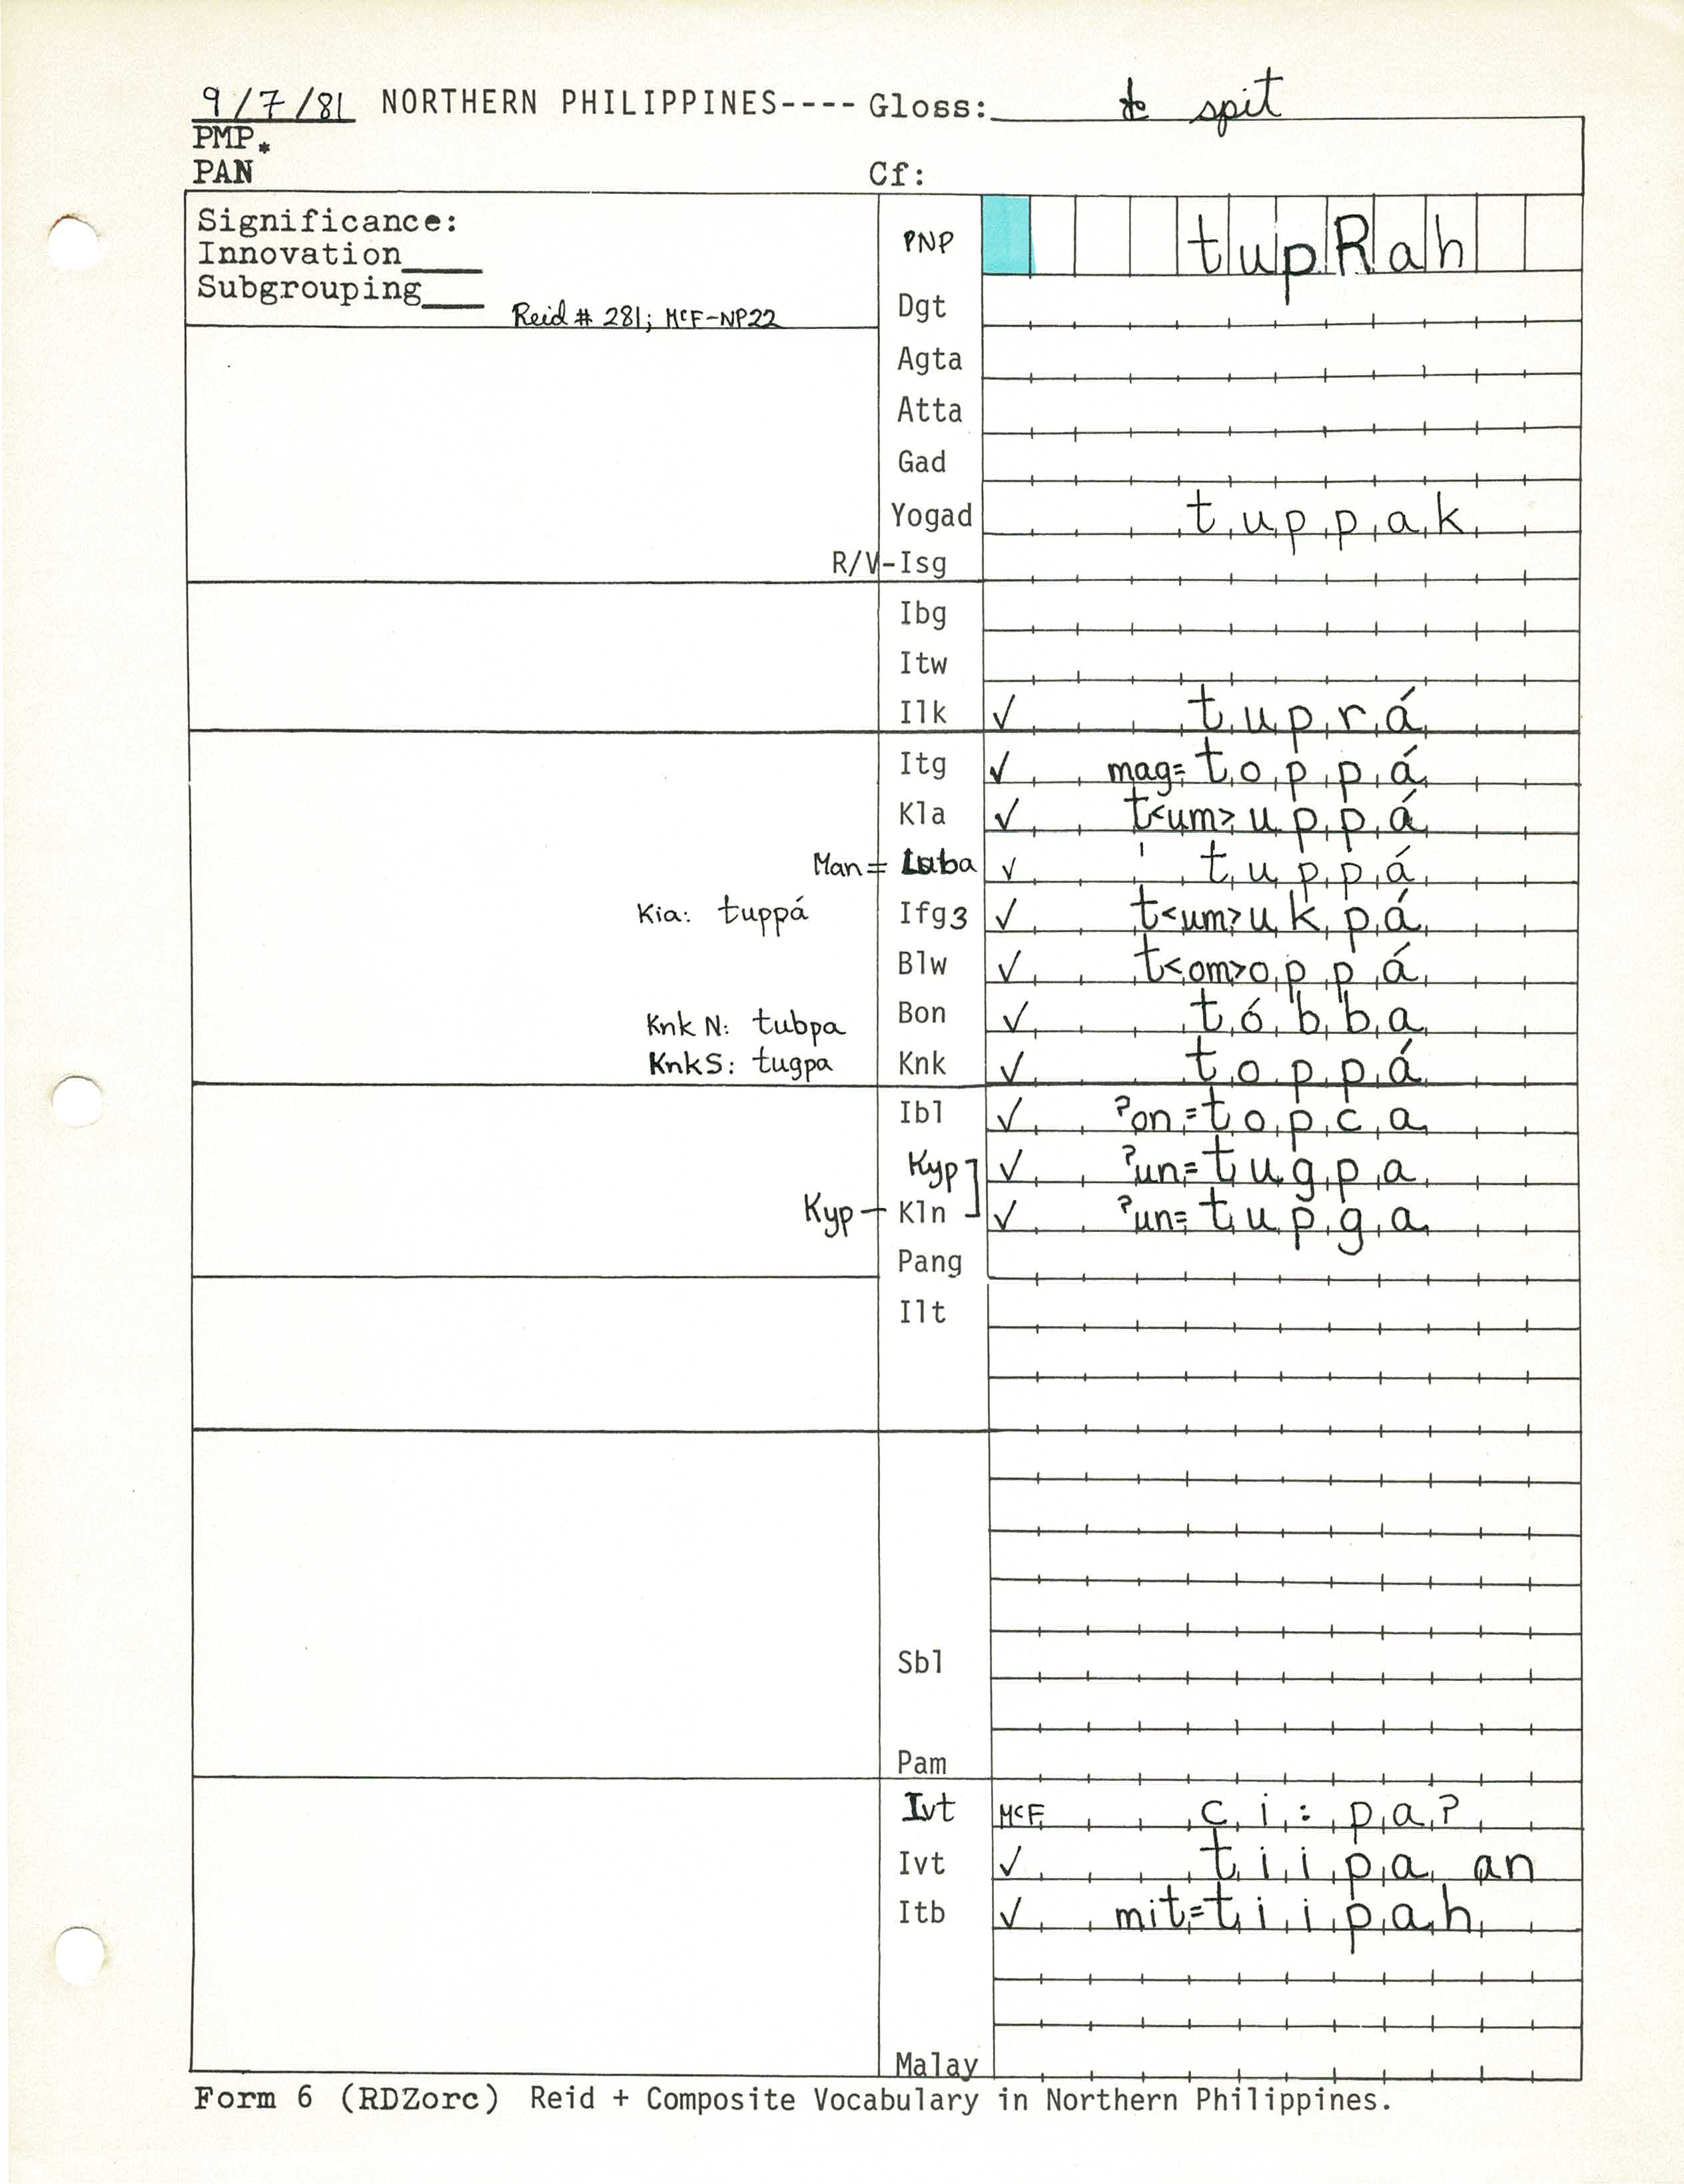 9/7/81 NORTHERN PHILIPPINES---- Gloss: to spit
PMP *
PAN Cf:
Significance:
Innovation____
Subgrouping___
Reid # 281; McF-NP22
PNP tupRah
Dgt
Agta
Atta
Gad
Yogad tuppak
R/V-Isg
Ibg
Itw
Ilk ✓ tuprá
Itg ✓ mag=toppá
Kla ✓ t<um>uppá
Man= Luba ✓ tuppá
Kia: tuppá Ifg3 ✓ t<um>ukpá
Blw ✓ t<om>oppá
Knk N: tubpa Bon ✓ tóbba
Knk S: tugpa Knk ✓ toppá
Ibl ✓ ?on=topca
Kyp ✓ ?un=tugpa
Kyp - Kln ✓ ?un=tupga
Pang
Ilt
Sbl
Pam
Ivt McF ci:pa?
Ivt ✓ tiipa an
Itb ✓ mit=tiipah
Malay
Form 6 (RDZorc) Reid + Composite Vocabulary in Northern Philippines.